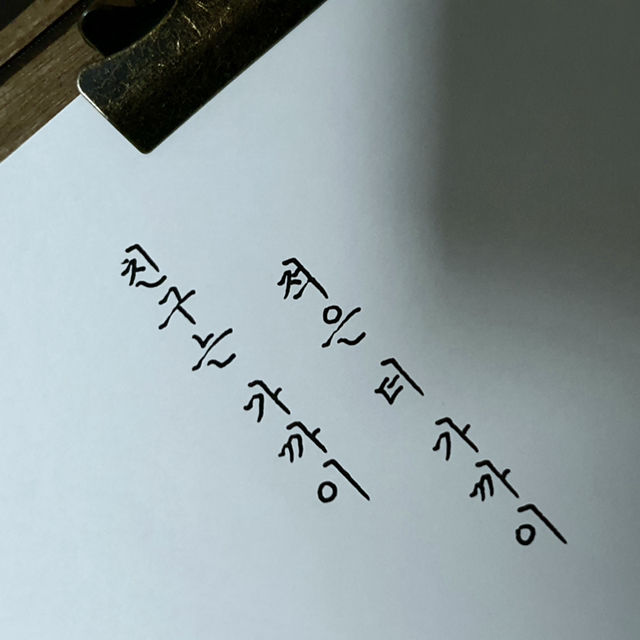 친구는 가까이
적은 더 가까이